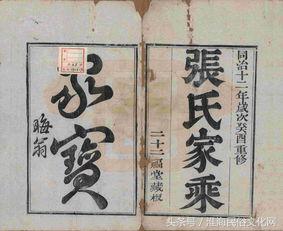 同治十二年歲次癸酉重修
張氏家乘
二十二福堂藏板
家寶
晦翁
头条号/淮海民俗文化网